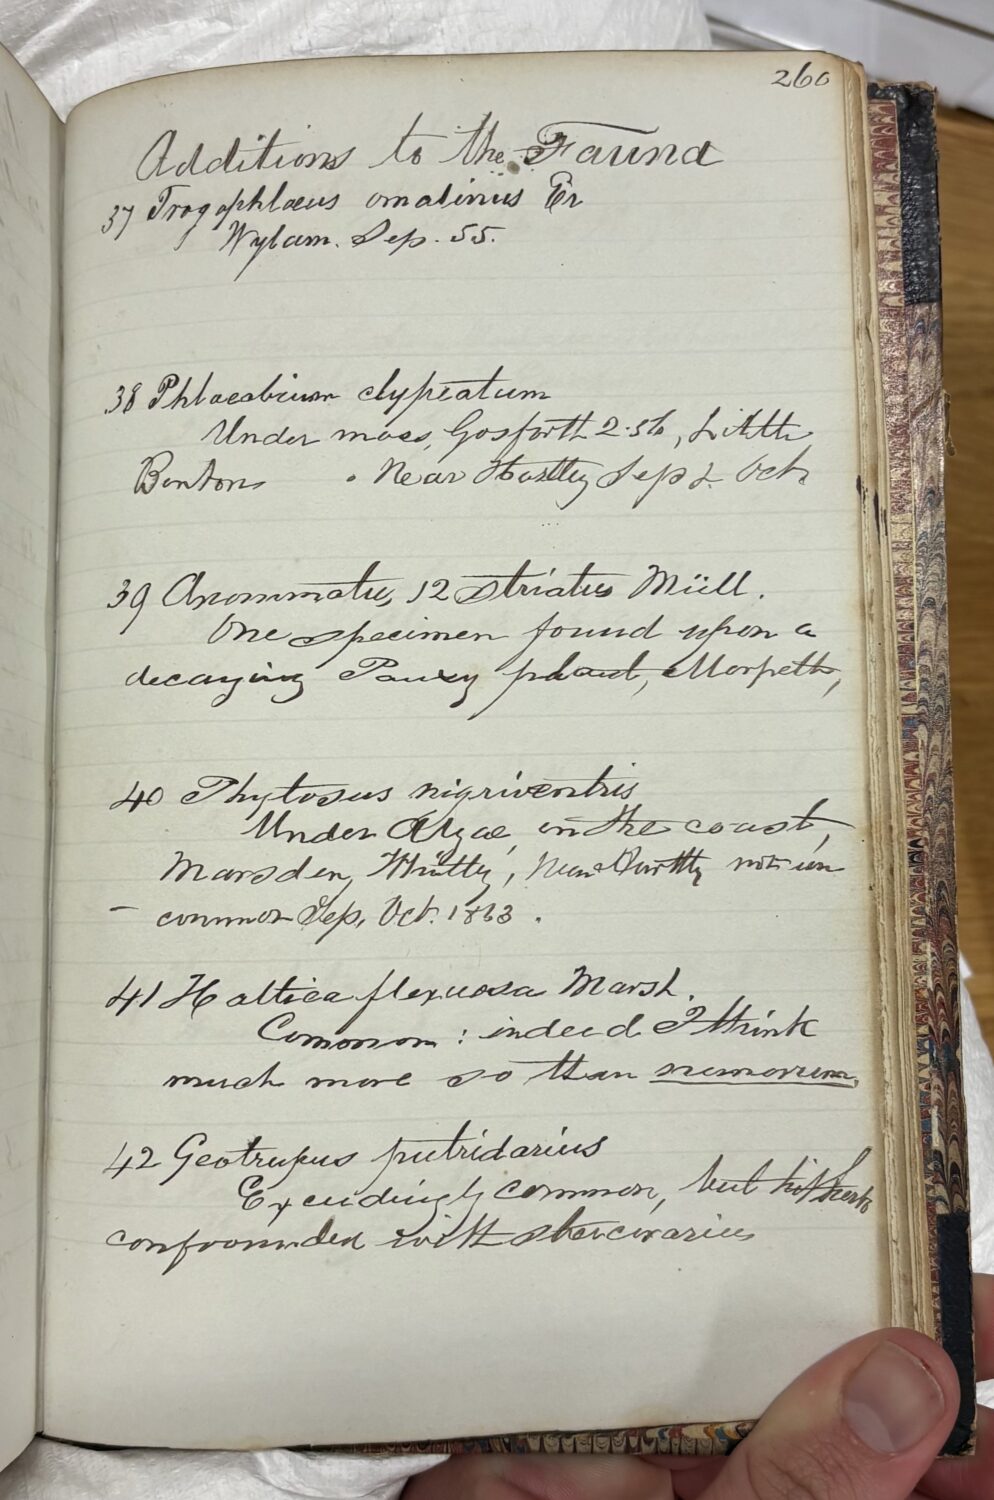 260
Additions to the Fauna
37 Trogophlæus omalinus Er
Wylam. Sep. 55.
38 Phlaeobium clypeatum
Under moss, Gosforth 2.56, Little
Benton Near Hartley Sep & Oct
39 Anommatus 12 striatus Müll.
One specimen found upon a
decaying Pansy plant, Morpeth,
40 Phytosus nigriventris
Under Algae, on the coast,
Marsden, Whitley, Near Hartley not un
- common Sep. Oct. 1863.
41 Haltica flexuosa Marsh.
Common: indeed I think
much more so than nemorum.
42 Geotrupus putridarius
Exceedingly common, but hitherto
confounded with stercorarius